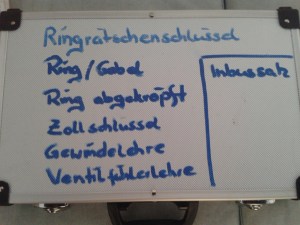 Ringratschenschlüssel
Ring/Gabel
Ring abgekröpft
Zollschlüssel
Gewindelehre
Ventilfühlerlehre
Inbussatz